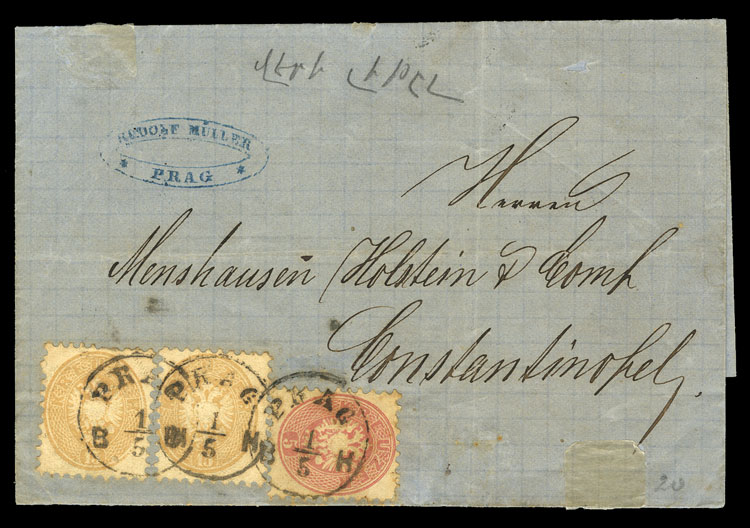 RUDOLF MÜLLER
* PRAG *
Herren
Menshausen Holstein & Comp
Constantinopel,
PRAG
B 1/5 H
PRAG
B 1/5 H
PRAG
B 1/5 H
5
20